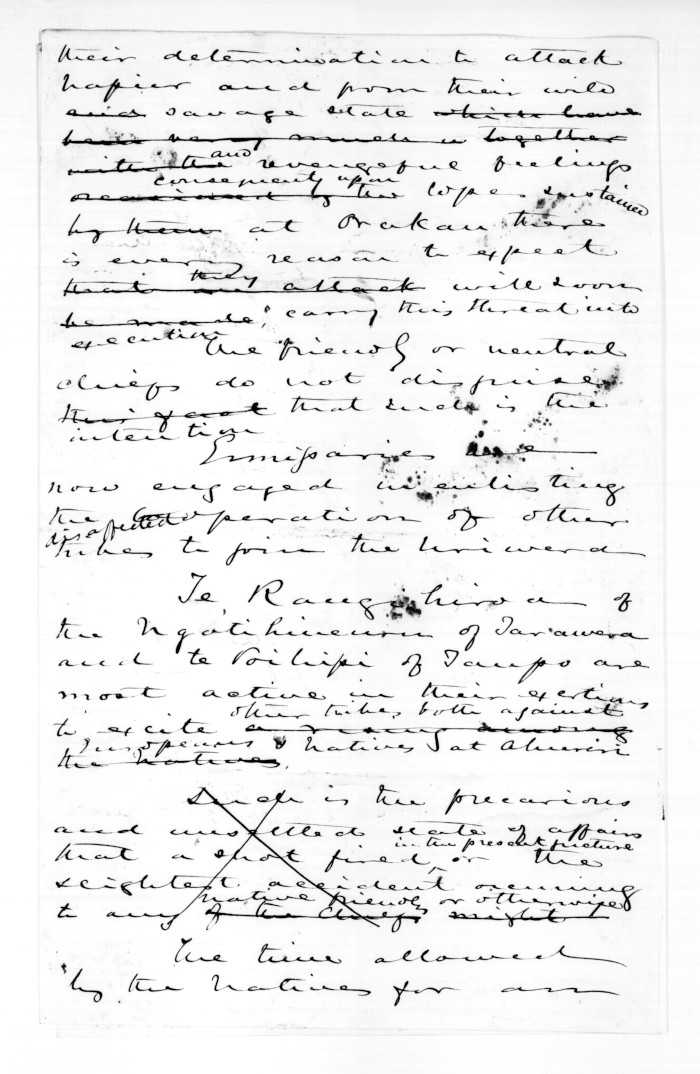 their determination to attack
Napier and from their wild
and savage state which have
been very much together
with the and revengeful feelings
consequently upon
occasioned by the loss sustained
by them at Orakau there
is every reason to expect
they
that an attack will soon
be made, carry this threat into
execution
The friendly or neutral
chiefs do not disguise
this fact that such is the
intention
Emissaries are
now engaged in enlisting
the Cooperation of other
disaffected
tribes to join the Uriwera
Te Rangihiroa of
the Ngatihineuru of Tarawera
and te Poihipi of Taupo are
most active in their exertions
other tribes both against
to excite a rising among
Europeans & Natives at Ahuriri
the Natives.
Such is the precarious
and unsettled state of affairs
in the present juncture
that a shot fired, or the
slightest accident occurring
native friendly or otherwise
to any of the Chiefs might
The time allowed
by the Natives for an